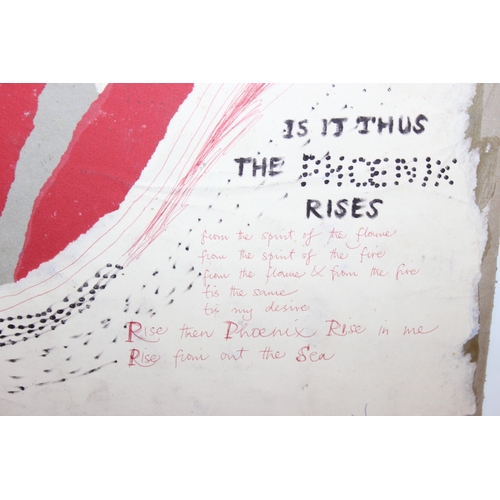 IS IT THUS
THE PHOENIX
RISES
from the spirit of the flame
from the spirit of the fire
from the flame & from the fire
tis the same
tis my desire
Rise then Phoenix Rise in me
Rise from out the Sea